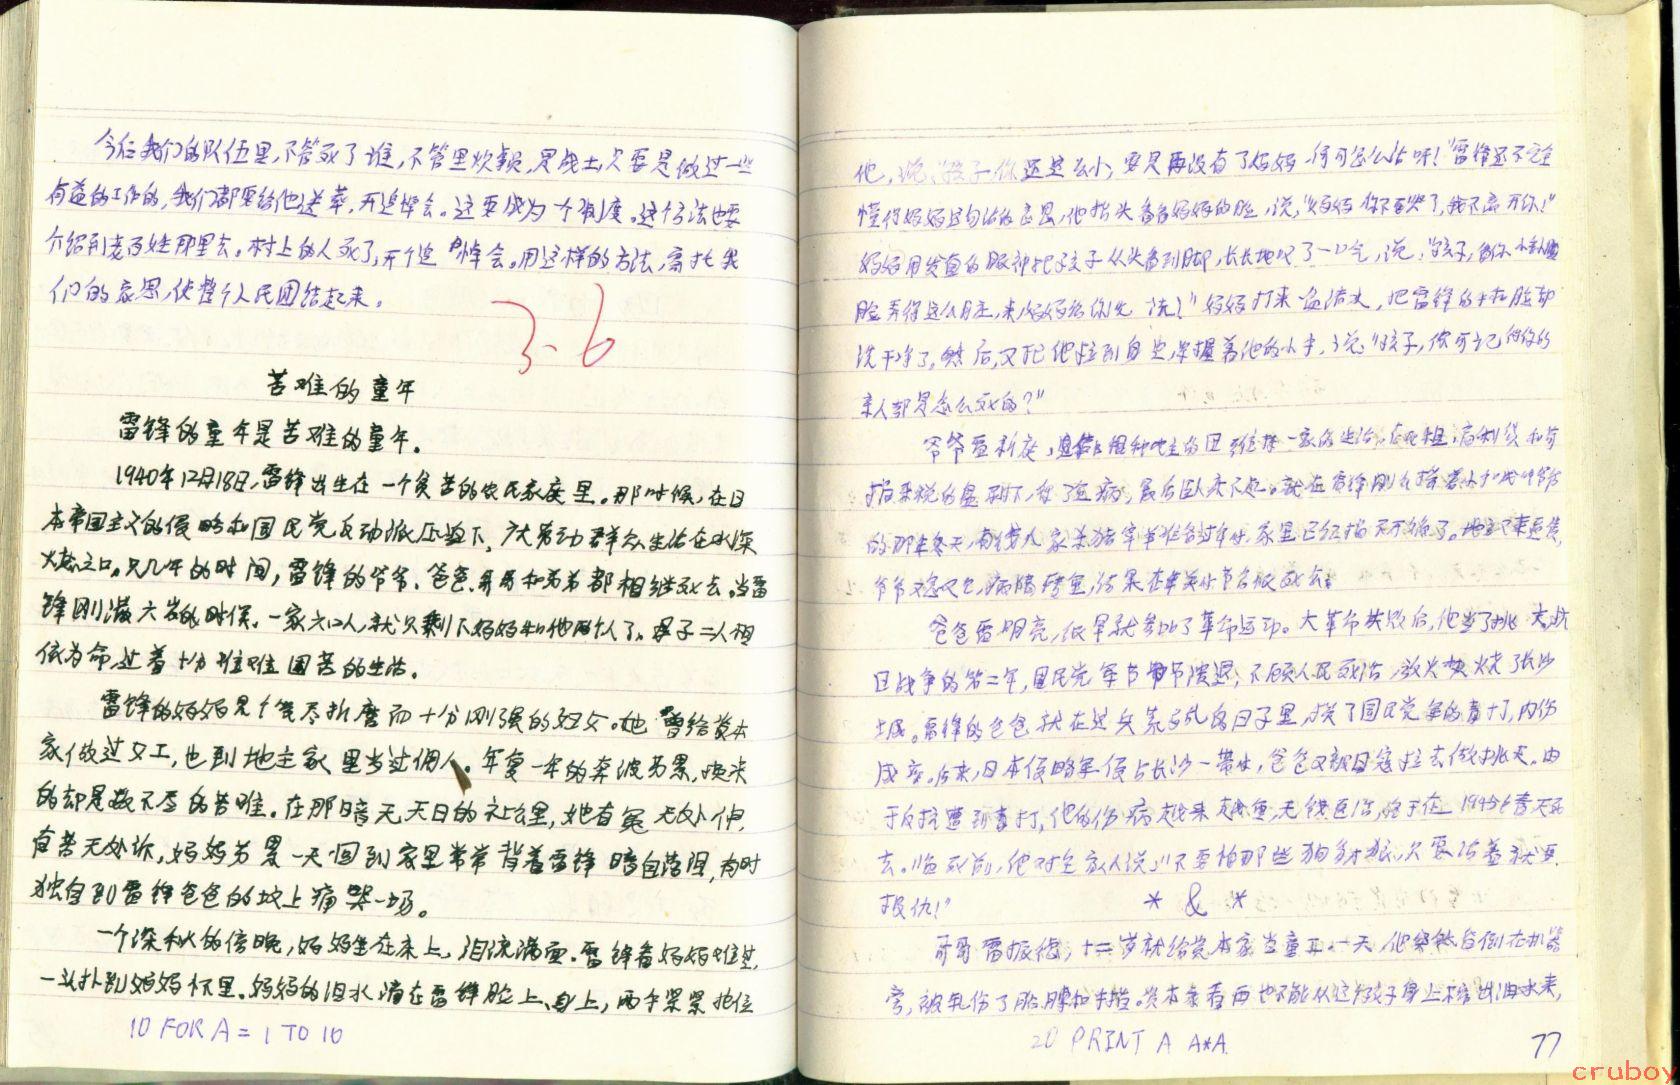 今后我们的队伍里,不管死了谁,不管是炊事员,是战士,只要是做过一些
有益的工作的,我们都要给他送葬,开追悼会。这要成为一个制度。这个方法也要
介绍到老百姓那里去。村上的人死了,开个追悼会。用这样的方法,寄托我
们的哀思,使整个人民团结起来。
3.6
苦难的童年
雷锋的童年是苦难的童年。
1940年12月18日,雷锋出生在一个贫苦的农民家庭里。那时候,在日
本帝国主义的侵略和国民党反动派压迫下,广大劳动群众生活在水深
火热之中。只几年的时间,雷锋的爷爷、爸爸、哥哥和弟弟都相继死去。当雷
锋刚满六岁的时候,一家六口人,就只剩下妈妈和他两个人了。母子二人相
依为命,过着十分艰难困苦的生活。
雷锋的妈妈是个受尽折磨而十分刚强的妇女。她曾给资本
家做过女工,也到地主家里当过佣人。年复一年的奔波劳累,换来
的却是数不尽的苦难。在那暗无天日的社会里,她有冤无处伸,
有苦无处诉,妈妈劳累一天回到家里常常背着雷锋暗自落泪,有时
独自到雷锋爸爸的坟上痛哭一场。
一个深秋的傍晚,妈妈坐在床上,泪流满面。雷锋看妈妈难过,
一头扑到妈妈怀里。妈妈的泪水滴在雷锋脸上、身上,两手紧紧抱住
10 FOR A = 1 TO 10
他,说,"孩子,你还这么小,要是再没有了妈妈,你可怎么活呀!"雷锋还不完全
懂得妈妈这句话的意思,他抬头看看妈妈的脸,说,"妈妈你不要哭了,我不离开你!"
妈妈用发直的眼神把孩子从头看到脚,长长地叹了一口气,说,"孩子,看你小
脸弄得这么脏,来,妈妈给你洗洗!"妈妈打来一盆清水,把雷锋的手和脸都
洗干净了。然后,又把他拉到身边,紧握着他的小手,说"孩子,你可记得你的
亲人都是怎么死的?"
爷爷雷新庭,租种地主的田维持一家的生活。在地租、高利贷和苛
捐杂税的盘剥下,得了重病,最后卧床不起。就在雷锋刚
的那年冬天,有钱人家杀猪宰羊准备过年,家里已经揭不开锅了。地主又来逼债,
爷爷又急又气,病情转重,结果在年关
爸爸雷明亮,很早就参加了革命运动。大革命失败后,他当了挑夫。抗
日战争的第二年,国民党军节节溃退,不顾人民死活,放火焚烧了长沙
城。雷锋的爸爸就在这兵荒马乱的日子里,挨了国民党军的毒打,内伤
成疾。后来,日本侵略军侵占长沙一带,爸爸又被日寇拉去做挑夫。由
于反抗遭到毒打,他的伤病越来越重,无钱医治,终于在1945年春天死
去。临死前,他对全家人说,"不要怕那些狗豺狼,只要活着就要
报仇!"
* & *
哥哥雷振德,十二岁就给资本家当童工。一天,他突然昏倒在机器
旁,被轧伤了胳膊和手指。资本家看再也不能从这孩子身上榨出油水来,
20 PRINT A A*A
77
cruboy